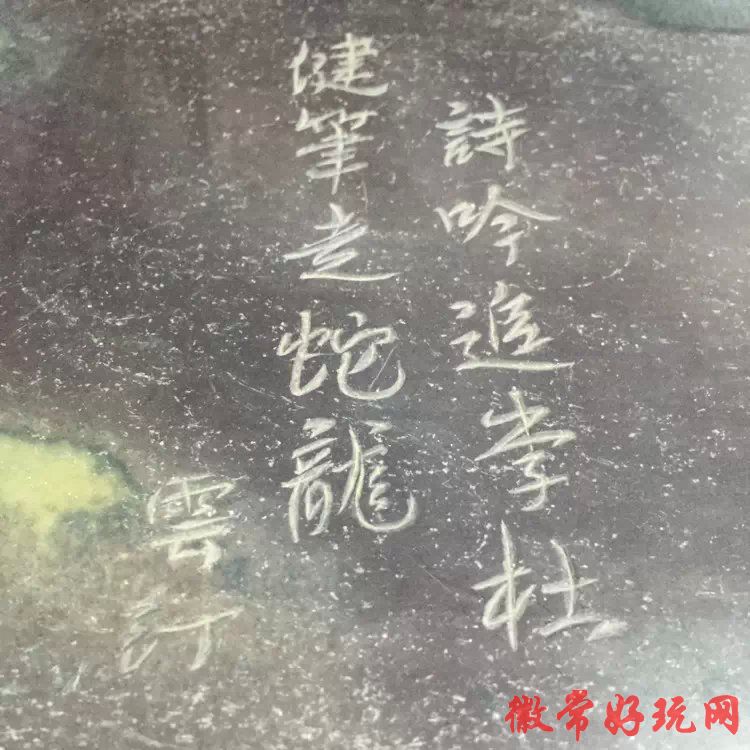 詩吟追李杜
健筆走蛇龍
雲汀
徽常好玩网